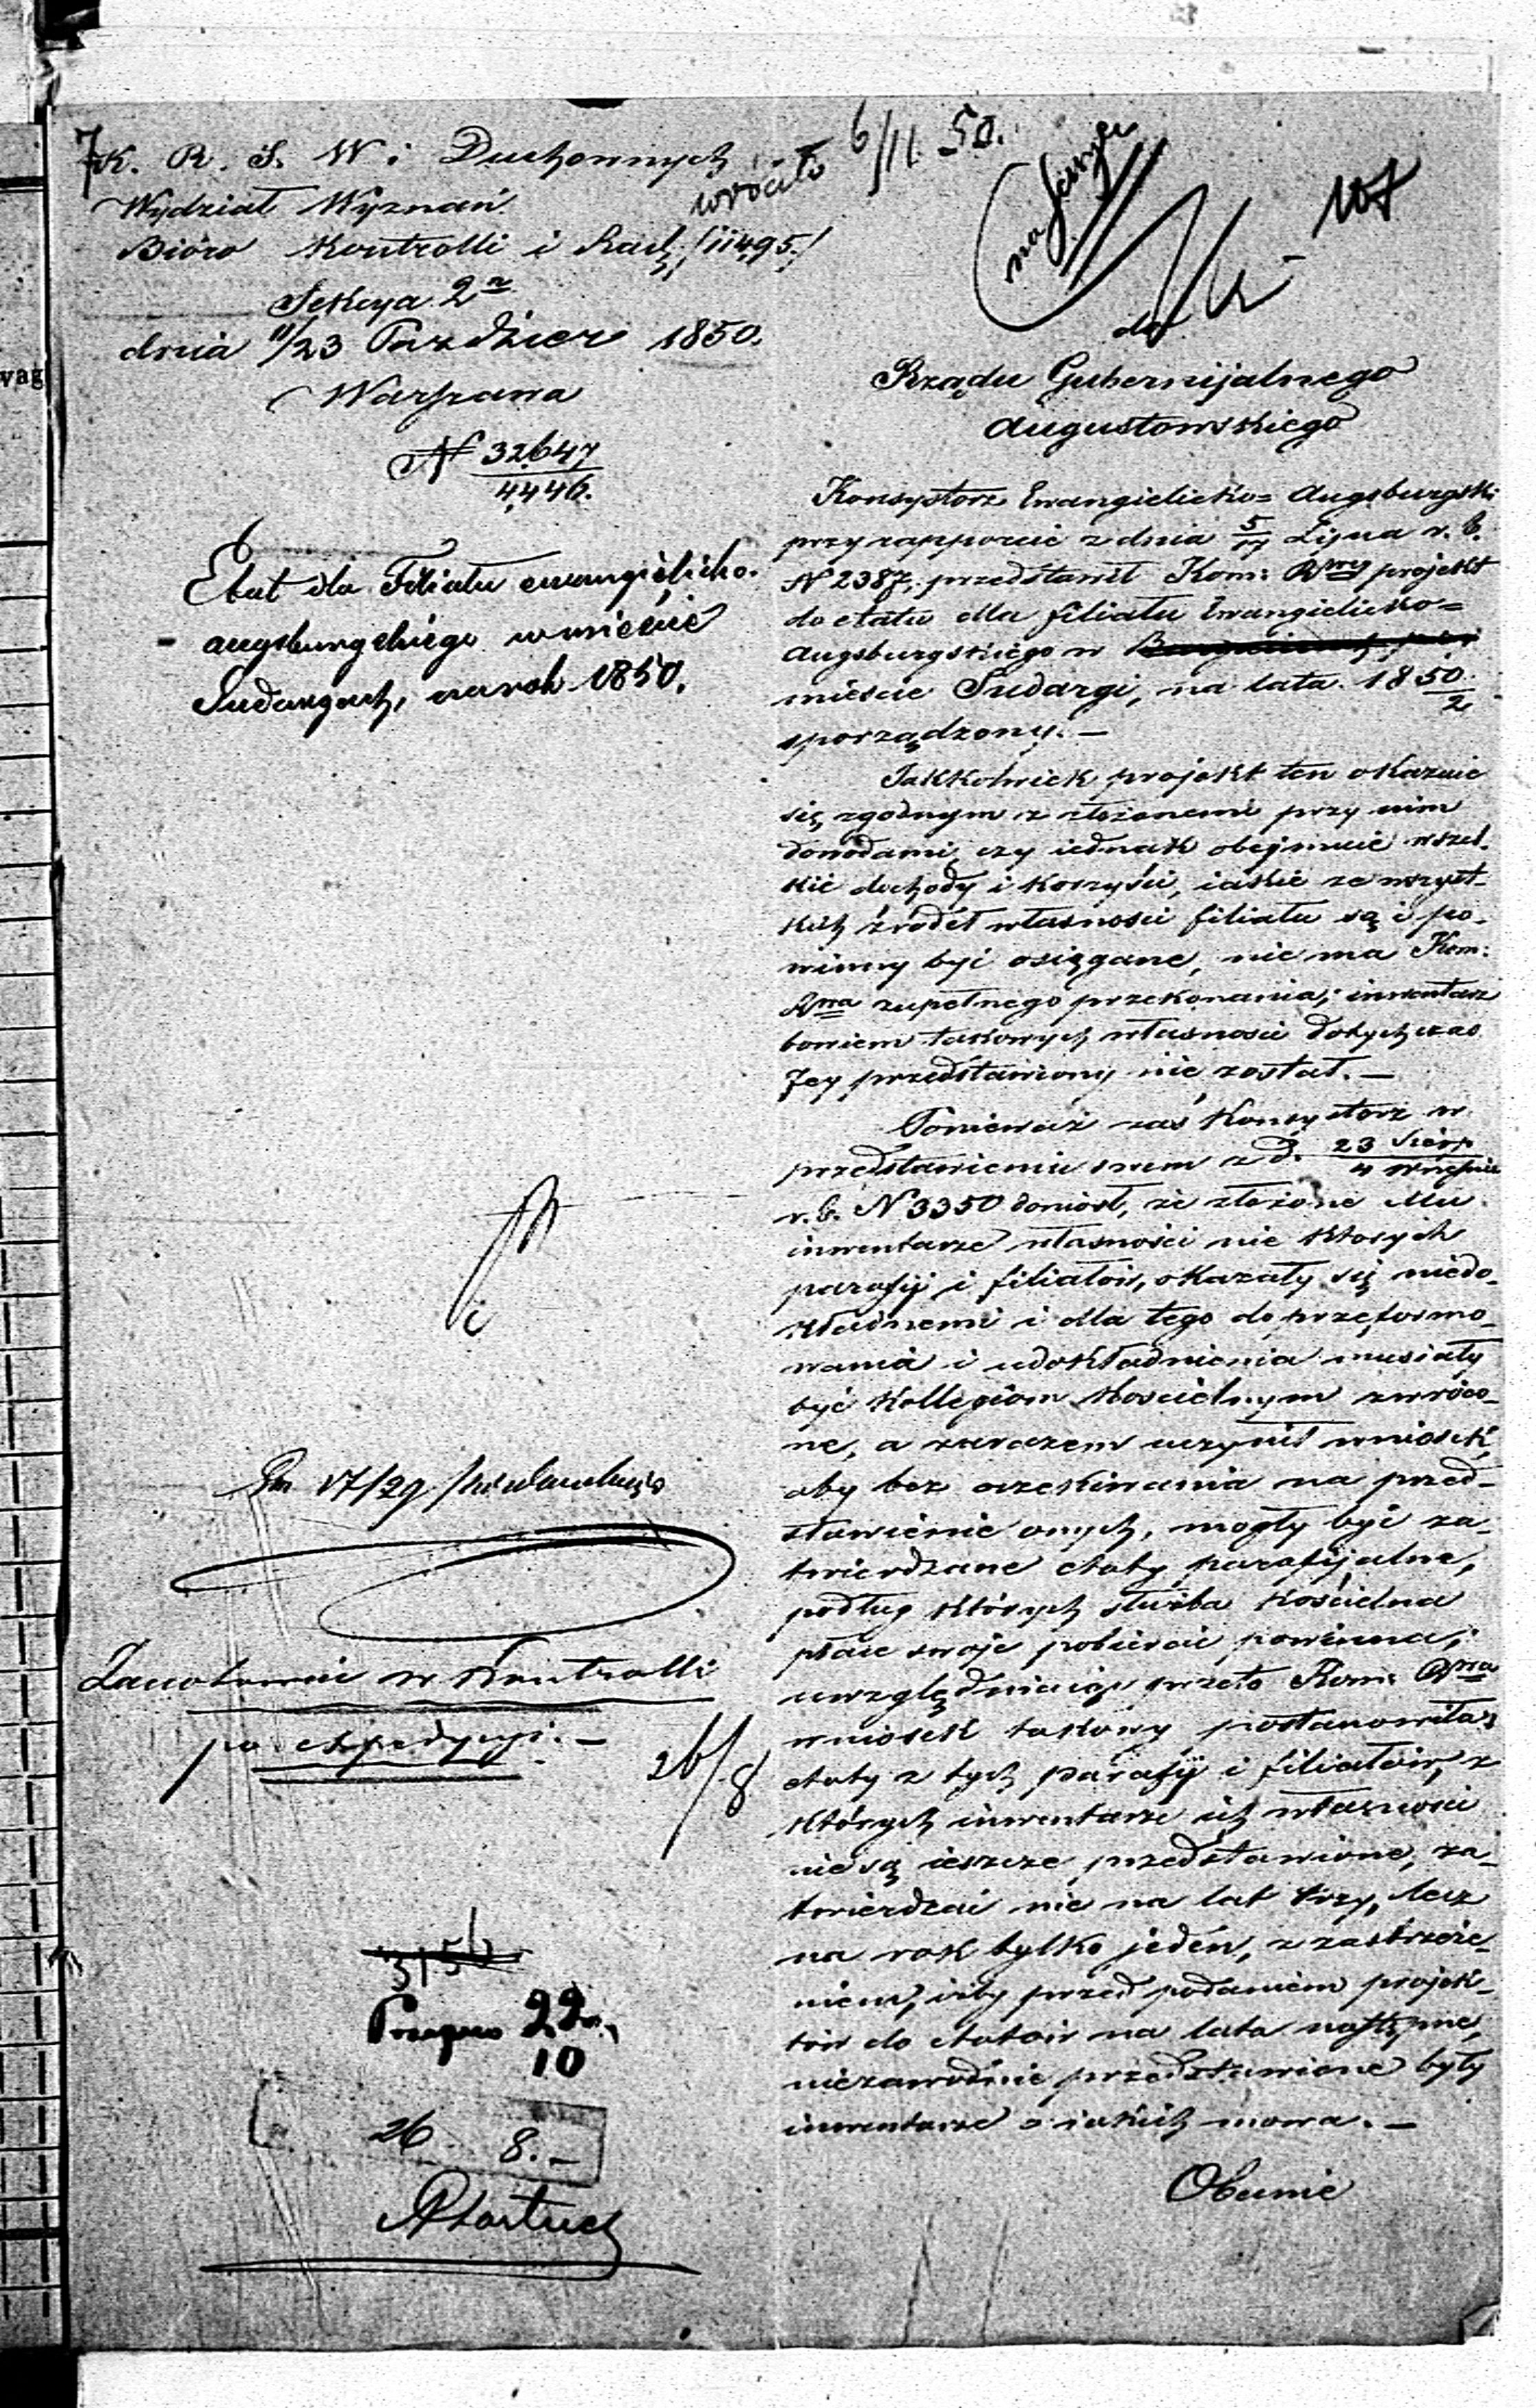 K. R. S. W i Duchownych
Wydział Wyznań
Bióro Kontrolli i Rach. /11495/
Sekcya 2a
dnia 11/23 Paździer 1850.
Warszawa
N 32647
4446.
Etat dla Filiału ewangielicko-
augsburgskiego w mieście
Sudargach, na rok 1850.
17/29
Zanotowano w Kontrolli
po expedycyi. —
26/8
3156
22
10
26 8. —
wróciło 6/11 50.
107
do
Rządu Gubernijalnego
Augustowskiego
Konsystorz Ewangielicko= Augsburgski
przy rapporcie z dnia 5/17 Lipca r. b.
N 2387, przedstawił Kom: Rwy projekt
do etatu dla filiału Ewangielicko=
Augsburgskiego w
mieście Sudargi, na lata 1850/2
sporządzony. —
Jakkolwiek projekt ten okazuie
się zgodnym z złożonemi przy nim
dowodami, czy iednak obejmuie wszel-
kie dochody i korzyści, iakie ze wszyst-
kich źródeł własności filiału są i po-
winny być osiągane, nie ma Kom:
Rwa zupełnego przekonania; inwentarz
bowiem takowych własności dotychczas
Jey przedstawiony nie został. —
Ponieważ zaś Konsystorz w
przedstawieniu swem z d. 23 Sierp / 4 Wrześnie
r. b. N 3350 doniosł, że złożone Mu
inwentarze własności nie których
parafij i filiałów, okazały się niedo-
kładnemi i dla tego do przeformo-
wania i udokładnienia musiały
być Kollegiom Kościelnym zwróco-
ne, a zarazem uczynił wniosek,
aby bez oczekiwania na przed-
stawienie onych, mogły być za-
twierdzane etaty parafijalne,
podług których służba kościelna
płace swoje pobierać powinna;
uwzględniaiąc przeto Kom: Rwa
wniosek takowy postanowiła:
etaty z tych parafij i filiałów, z
których inwentarze ich własności
nie są ieszcze przedstawione, za-
twierdzać nie na lat trzy, lecz
na rok tylko jeden, z zastrzeże-
niem, iżby przed podaniem projek-
tów do etatów na lata następne,
niezawodnie przedstawione były
inwentarze o iakich mowa. —
Obecnie